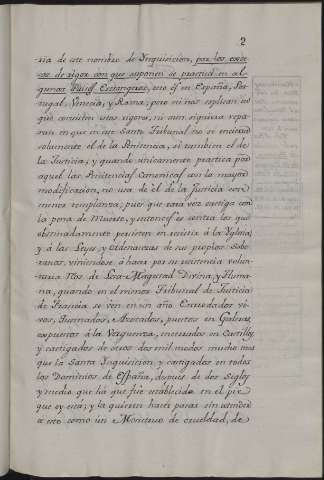 2
ria de este nombre de Ynquisicion, por los exce-
sos de rigor con que suponen se practica en al-
gunos Paises Extrangeros, esto es en España, Por-
tugal, Venecia, y Roma; pero ni nos explican en
que consisten estos rigores, ni aun siquiera repa-
ran en que en este Santo Tribunal no se encierra
solamente el de la Penitencia, si tambien el de
la Justicia; y quando unicamente practica por
aquel las Penitencias Canonicas con la mayor
modificacion, no usa de èl de la Justicia con
menos templanza; pues que rara vez castiga con
la pena de Muerte, y entonces es contra los que
obstinadamente persisten en resistir à la Yglesia
y à las Leyes y Ordenanzas de sus propios Sobe-
ranos, viniendose à hacer por su pertinacia volun-
taria Reos de Lesa Magestad Divina, y Huma-
na; quando en el menor Tribunal de Justicia
de Francia se ven en un año Enrodados vi-
vos, Quemados, Azotados, puestos en Galeras,
expuestos à la Verguenza, encerrados en Castillos,
y castigados de otros dos mil modos muchos mas
que la Santa Ynquisicion y castigados en todos
los Dominios de España, después de dos Siglos
y medio que hà que fue establecida en el pie
que oy està; y la quieren hacer pasar sin atender
à esto como un Monstruo de crueldad, de